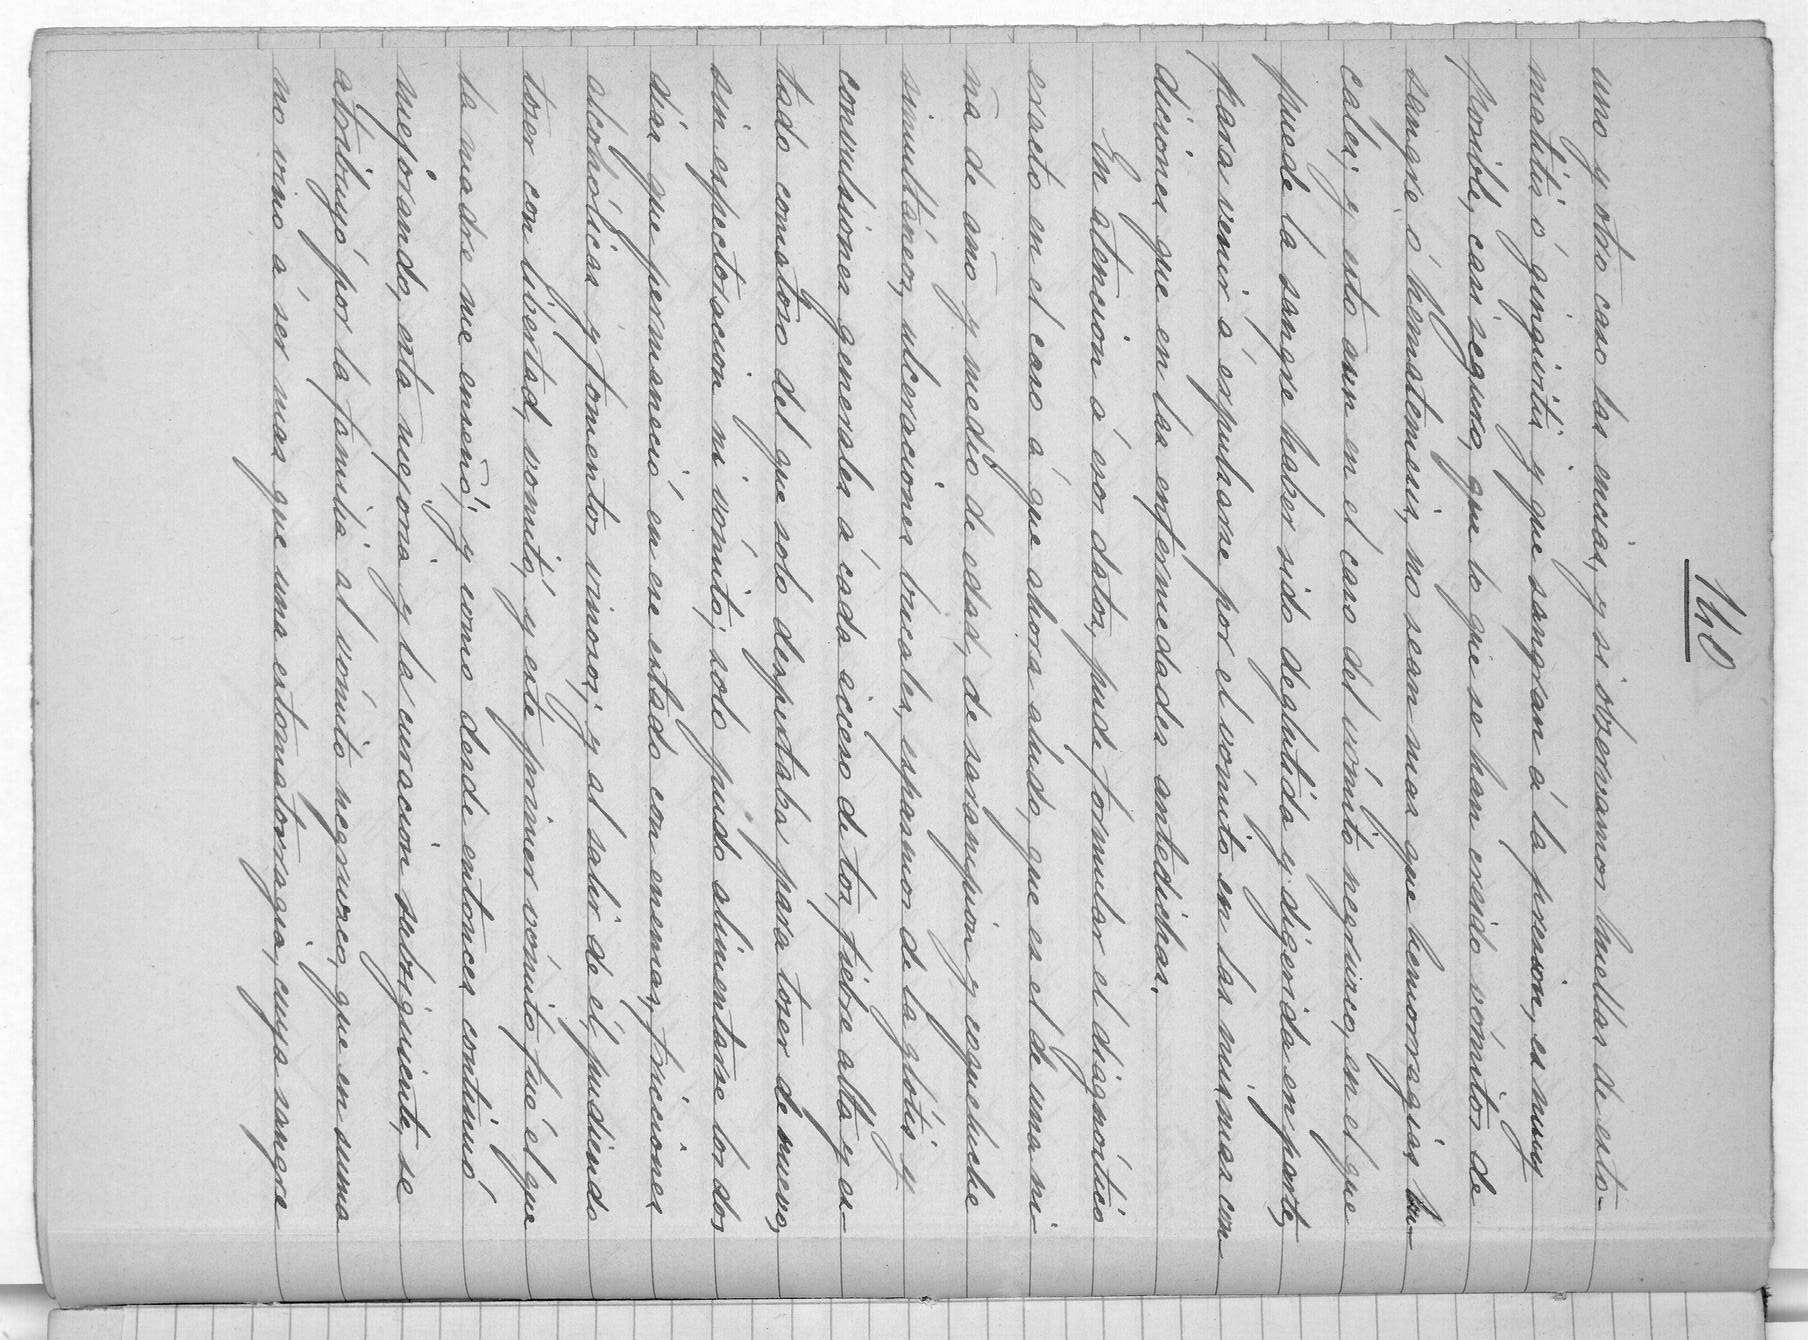 140
uno y otro caso las encias, y si observamos huellas de esto-
matitis ó gingivitis y que sangran á la presion, es muy
posible, casi seguro, que lo que se han creido vómitos de
sangre ó hematemesis, no sean mas que hemorragias bu-
cales; y esto aun en el caso del vómito negruzco, en el que
puede la sangre haber sido deglutida y digerida en parte,
para venir á expulsarse por el vómito en las mismas con-
diciones que en las enfermedades antedichas.
En atencion á esos datos, pude formular el diagnóstico
exacto en el caso á que ahora aludo, que es el de una ni-
ña de año y medio de edad, de sarampion y coqueluche
simultáneos, ulceraciones bucales, espasmos de la glótis y
convulsiones generales á cada acceso de tos, fiebre alta y es-
tado comatoso del que solo despertaba para toser de nuevo,
sin espectoracion ni vómito; solo pudo alimentarse los dos
dias que permaneció en ese estado con enemas, fricciones
alcohólicas y fomentos vinosos; y al salir de él, pudiendo
toser con libertad, vomitó, y este primer vómito fué el que
la madre me enseñó; y como desde entonces continuó
mejorando, esta mejoria y la curacion subsiguiente, se
atribuyó por la familia al vómito negruzco, que en suma
no vino á ser mas que una estomatorragia, cuya sangre